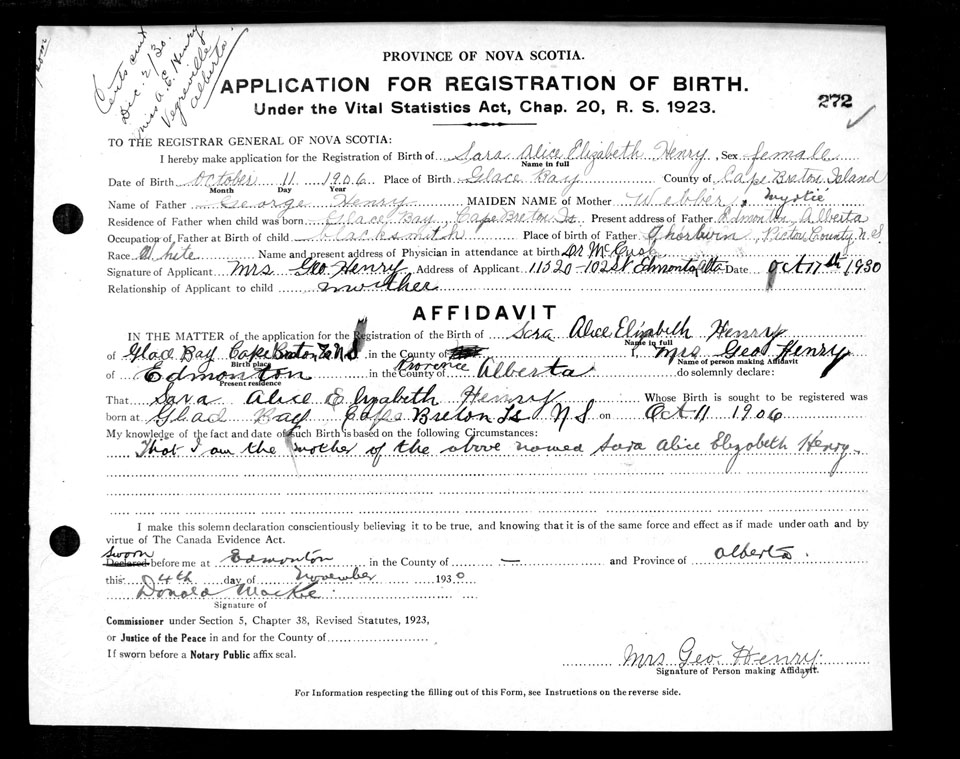 Certs sent
Dec. 2/30.
Miss A. E. Henry
Vegreville
Alberta.
PROVINCE OF NOVA SCOTIA.
APPLICATION FOR REGISTRATION OF BIRTH.
Under the Vital Statistics Act, Chap. 20, R. S. 1923.
272
TO THE REGISTRAR GENERAL OF NOVA SCOTIA:
I hereby make application for the Registration of Birth of Sara Alice Elizabeth Henry, Sex female
Name in full
Date of Birth October 11 1906 Place of Birth Glace Bay County of Cape Breton Island
Month Day Year
Name of Father George Henry MAIDEN NAME of Mother Webber, Myrtie
Residence of Father when child was born Glace Bay, Cape Breton Is Present address of Father Edmonton, Alberta
Occupation of Father at Birth of child blacksmith Place of birth of Father Pictou County N.S
Race White Name and present address of Physician in attendance at birth Dr McCuish
Signature of Applicant Mrs Geo Henry Address of Applicant 11020-102 St Edmonton, Alta Date Oct 17th 1930
Relationship of Applicant to child mother
AFFIDAVIT
IN THE MATTER of the application for the Registration of the Birth of Sara Alice Elizabeth Henry
Name in full
of Glace Bay Cape Breton Is N S, in the County of Mrs Geo Henry
Birth place Name of person making Affidavit
of Edmonton in the County of Province Alberta do solemnly declare:
Present residence
That Sara Alice Elizabeth Henry Whose Birth is sought to be registered was
born at Glace Bay Cape Breton Is N S on Oct 11 1906
My knowledge of the fact and date of such Birth is based on the following Circumstances:
That I am the mother of the above named Sara Alice Elizabeth Henry.
I make this solemn declaration conscientiously believing it to be true, and knowing that it is of the same force and effect as if made under oath and by
virtue of The Canada Evidence Act.
Sworn
Declared before me at Edmonton in the County of — and Province of Alberta.
this 4th day of November 1930
Donald MacKie
Signature of
Commissioner under Section 5, Chapter 38, Revised Statutes, 1923,
or Justice of the Peace in and for the County of
If sworn before a Notary Public affix seal.
Mrs Geo. Henry.
Signature of Person making Affidavit.
For Information respecting the filling out of this Form, see Instructions on the reverse side.